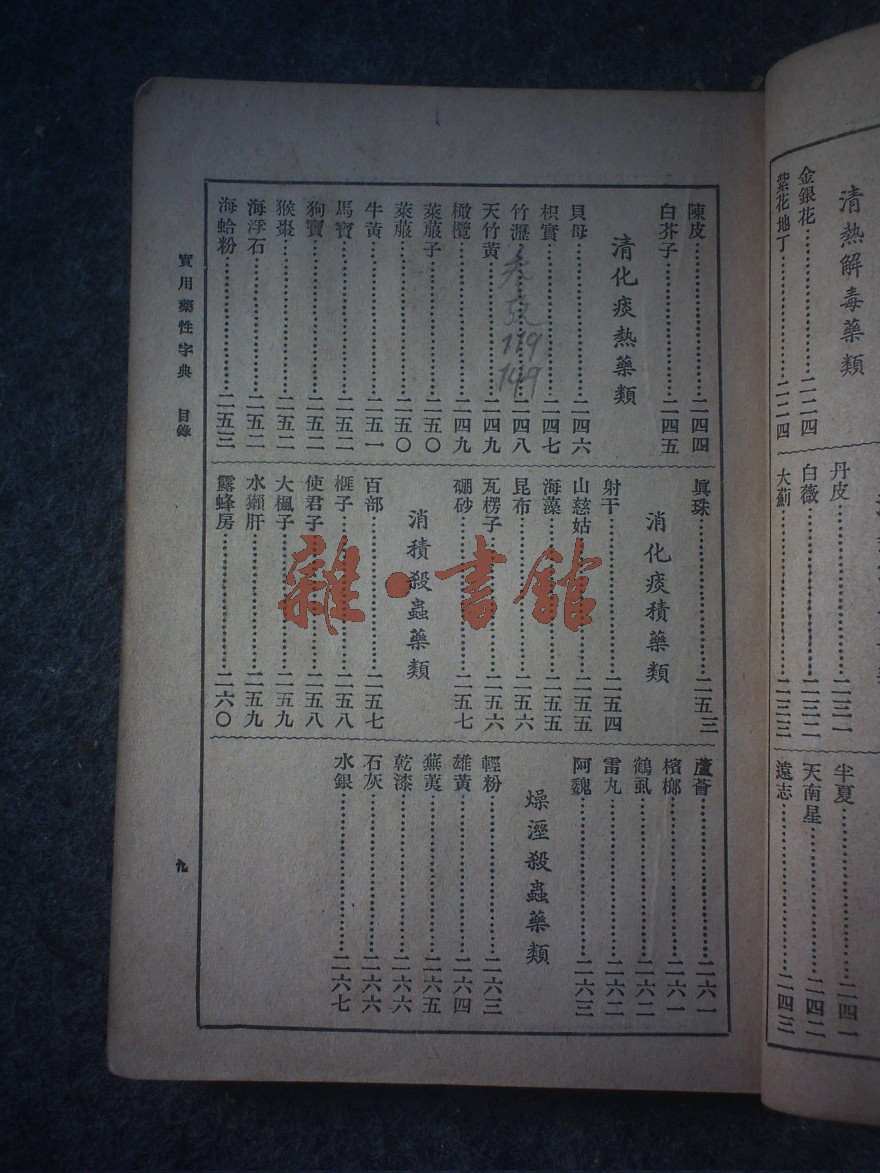 清熱解毒藥類
金銀花…二二四
紫花地丁…二二四
丹皮…二三一
白薇…二三二
大薊…二三三
半夏…二四一
天南星…二四二
遠志…二四三
陳皮…二四四
白芥子…二四五
清化痰熱藥類
貝母…二四六
枳實…二四七
竹瀝…二四八
天竹黃…二四九
橄欖…二四九
萊菔子…二五〇
萊菔…二五〇
牛黃…二五一
馬寶…二五二
狗寶…二五二
猴棗…二五二
海浮石…二五二
海蛤粉…二五三
119
149
眞珠…二五三
消化痰積藥類
射干…二五四
山慈姑…二五五
海藻…二五五
昆布…二五六
瓦楞子…二五六
硼砂…二五七
消積殺蟲藥類
百部…二五七
榧子…二五八
使君子…二五八
大楓子…二五九
水獺肝…二五九
露蜂房…二六〇
蘆薈…二六一
檳榔…二六一
鶴虱…二六二
雷丸…二六二
阿魏…二六三
燥溼殺蟲藥類
輕粉…二六三
雄黃…二六四
蕪荑…二六五
乾漆…二六六
石灰…二六六
水銀…二六七
實用藥性字典 目錄
九
雜·書館